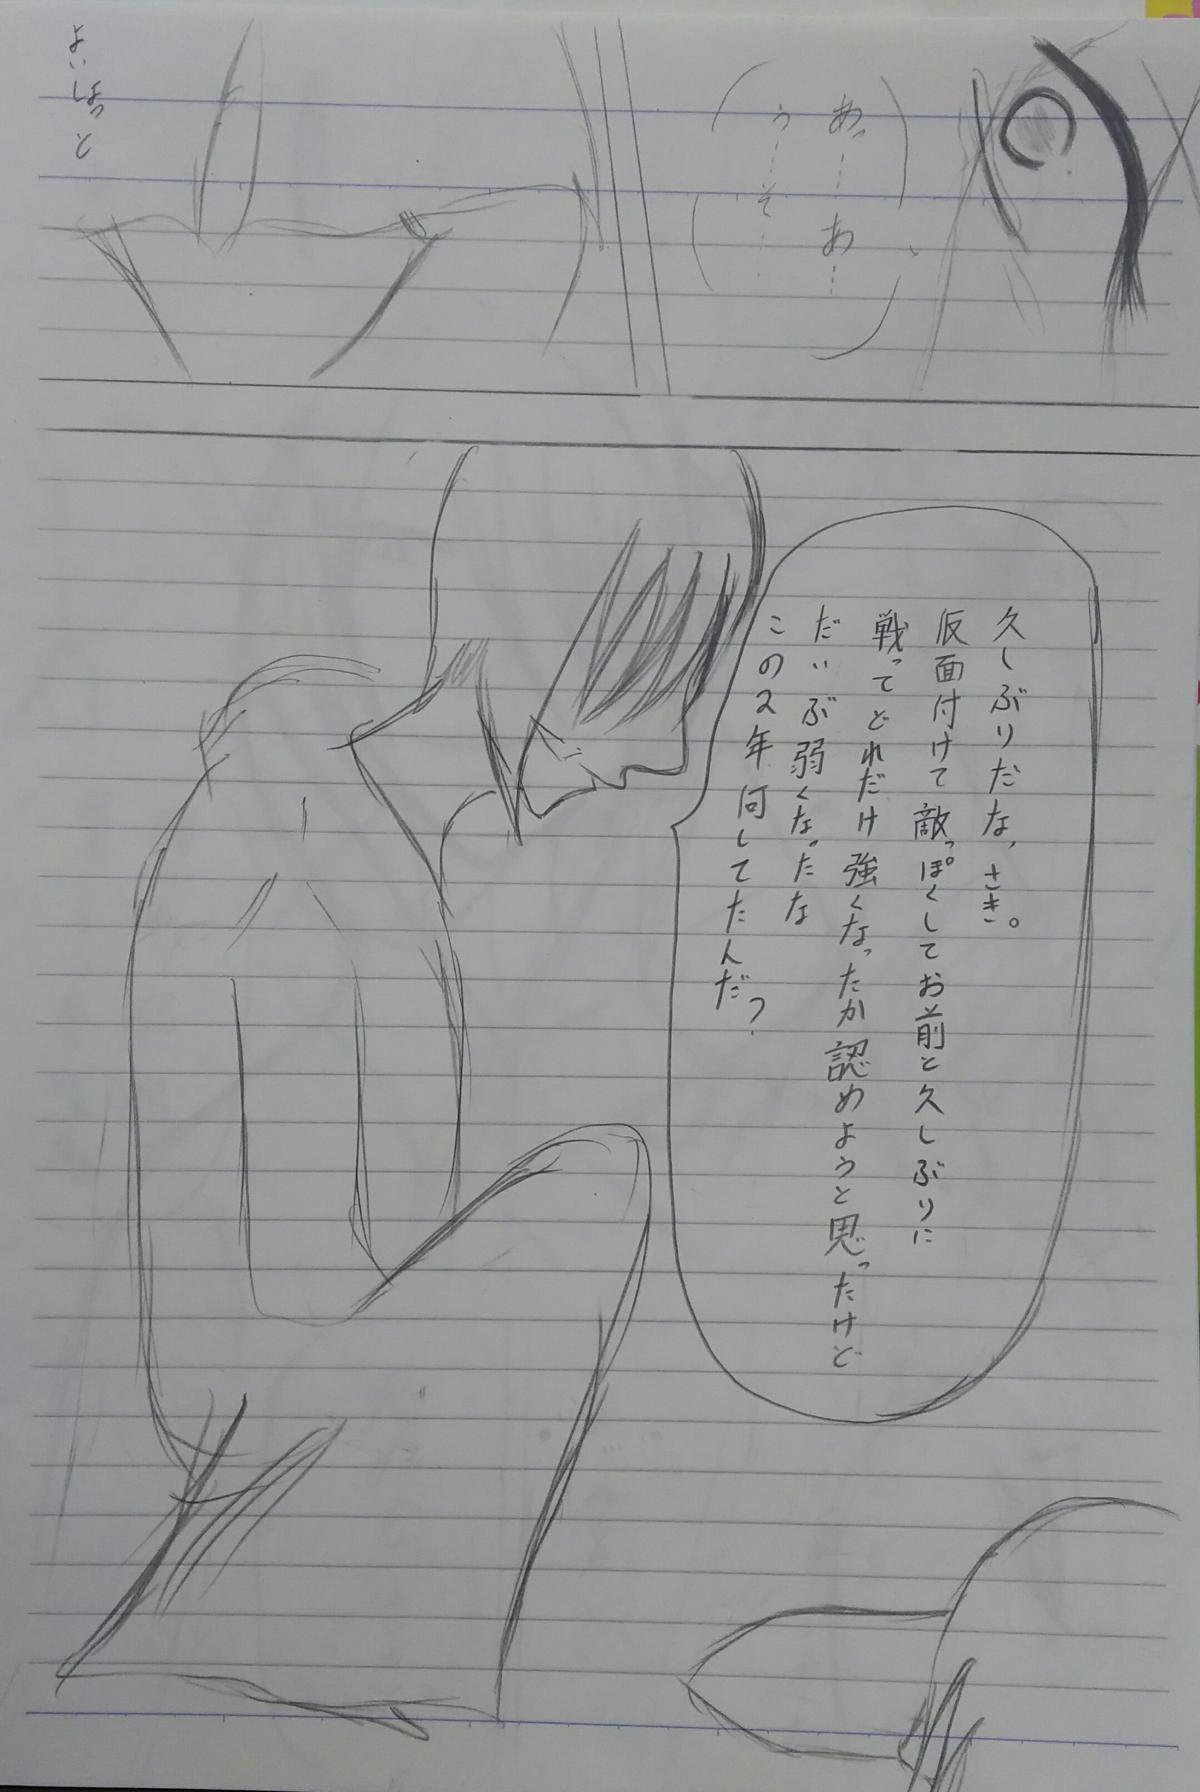 あっ……あ…
う……そ…
よいしょっと
久しぶりだな、さき。
仮面付けて敵っぽくしてお前と久しぶりに
戦ってどれだけ強くなったか認めようと思ったけど
だいぶ弱くなったな
この2年何してたんだ?